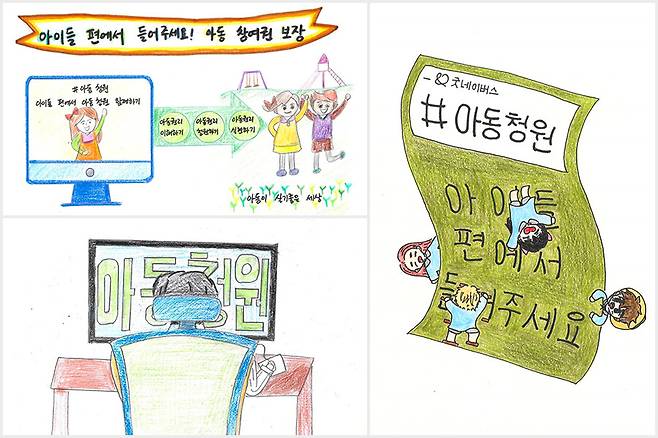 아이들 편에서 들어주세요! 아동 참여권 보장
#아동 청원
아이들 편에서 아동 청원 함께하기
아동권리
이해하기
아동권리
청원하기
아동권리
실현하기
아동이 살기좋은 세상
아동청원
굿네이버스
#아동청원
아이들
편에서
들어주세요